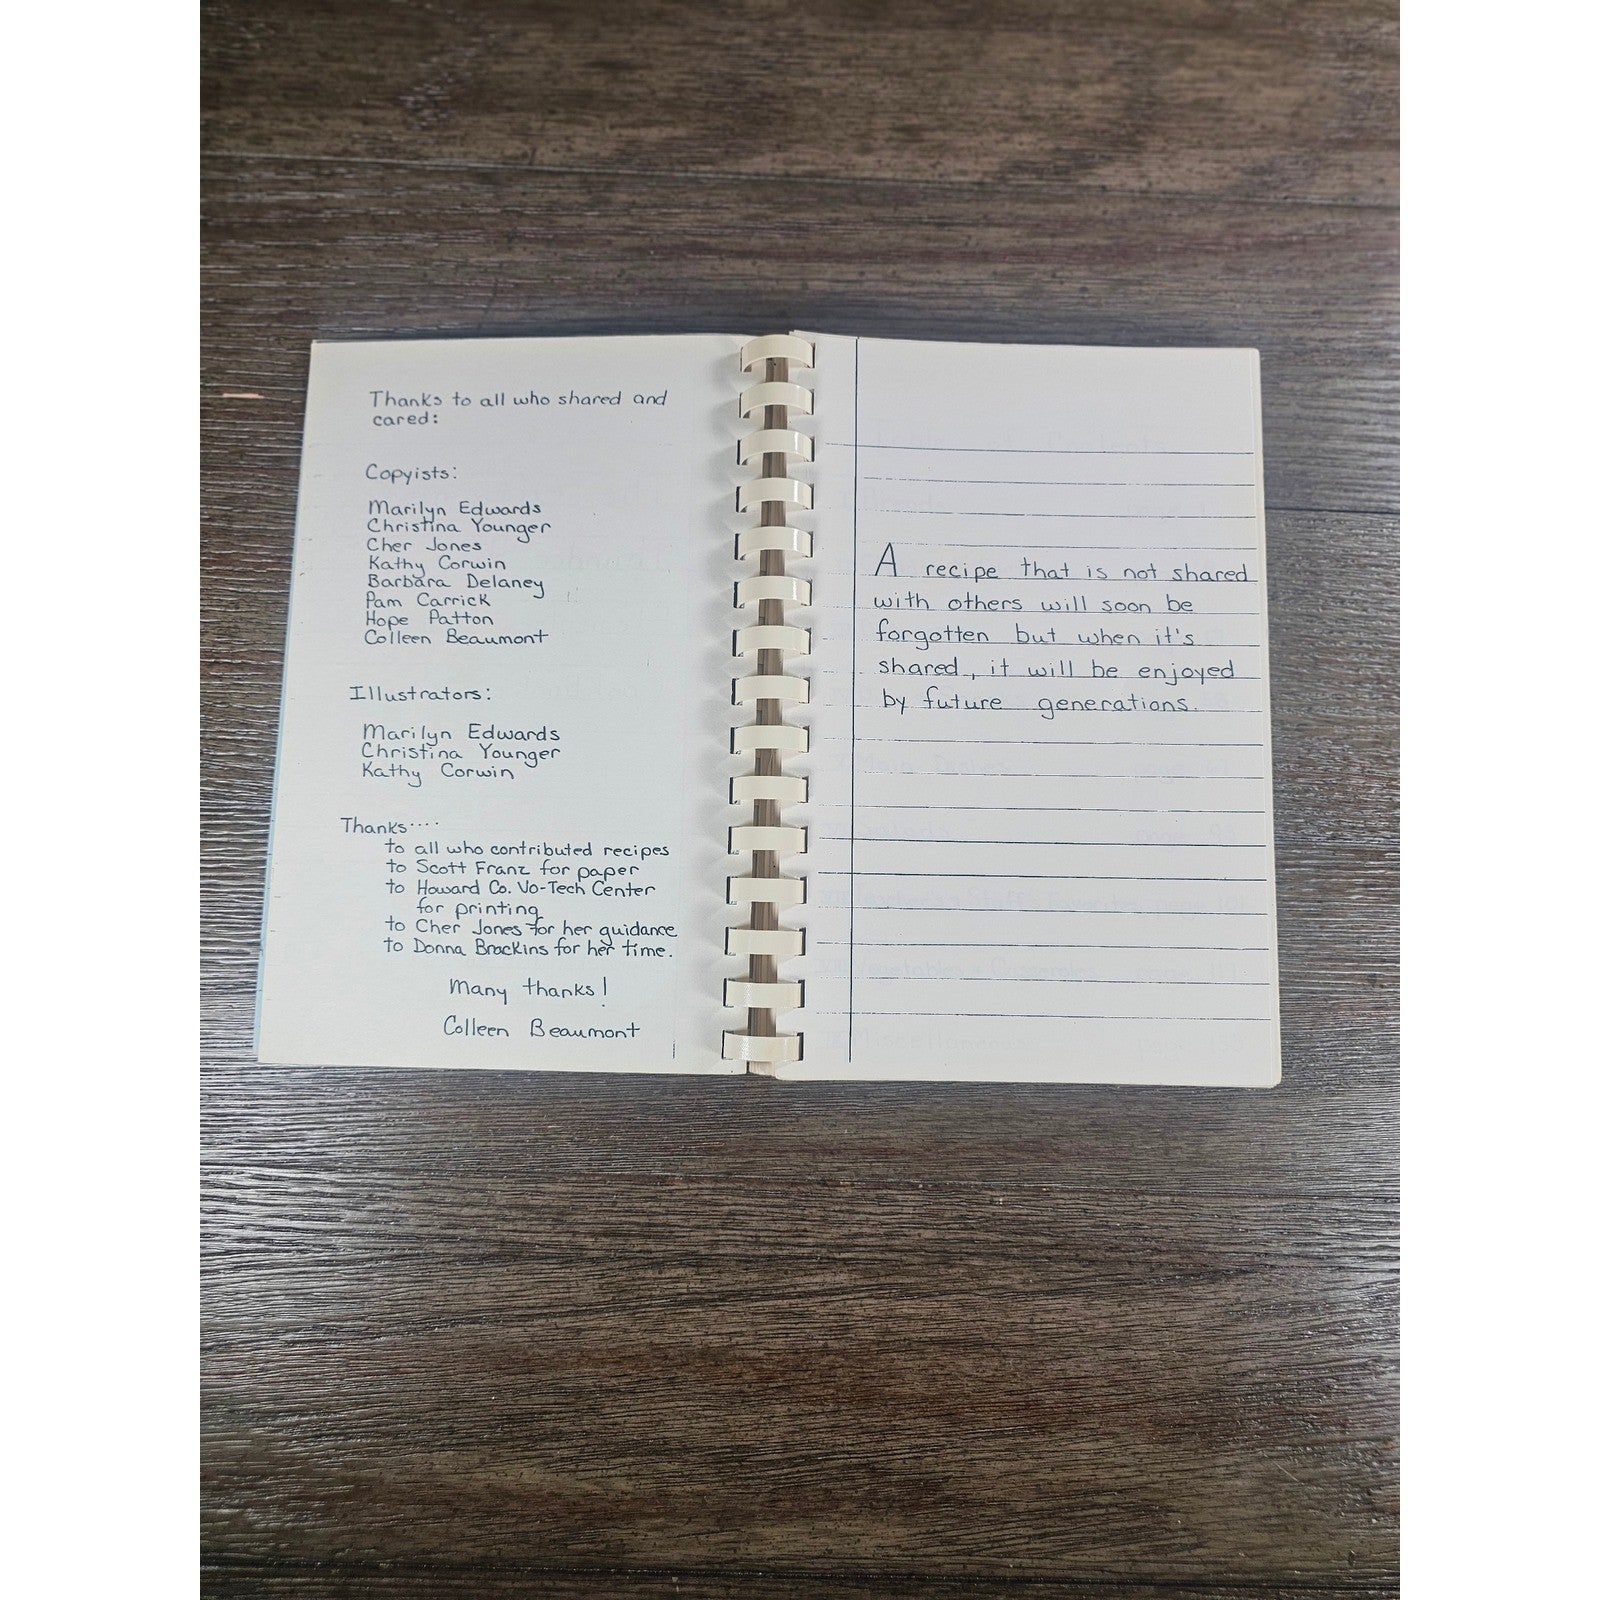 Thanks to all who shared and
cared:
Copyists:
Marilyn Edwards
Christina Younger
Cher Jones
Kathy Corwin
Barbara Delaney
Pam Carrick
Hope Patton
Colleen Beaumont
Illustrators:
Marilyn Edwards
Christina Younger
Kathy Corwin
Thanks....
to all who contributed recipes
to Scott Franz for paper
to Howard Co. Vo-Tech Center
for printing
to Cher Jones for her guidance
to Donna Brockins for her time.
Many thanks!
Colleen Beaumont
A recipe that is not shared
with others will soon be
forgotten but when it's
shared, it will be enjoyed
by future generations.